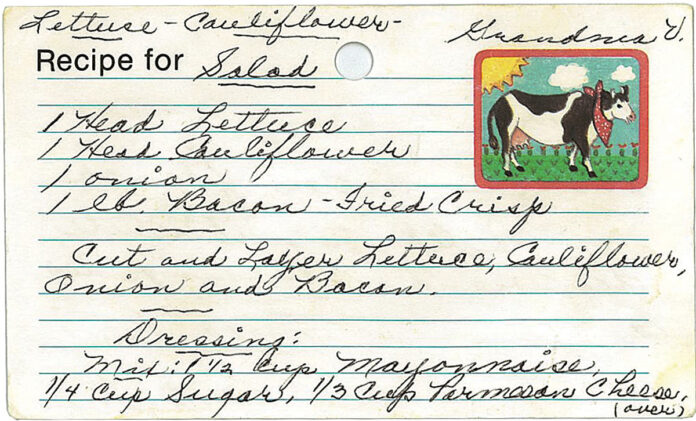 Lettuse - Cauliflower -
Grandma V.
Recipe for Salad
1 Head Lettuce
1 Head Cauliflower
1 onion
1 lb. Bacon - Fried Crisp
Cut and Layer Lettuce, Cauliflower,
Onion and Bacon.
Dressing:
Mix: 1 1/2 Cup Mayonnaise,
1/4 Cup Sugar, 1/3 Cup Parmesan Cheese,
(over)